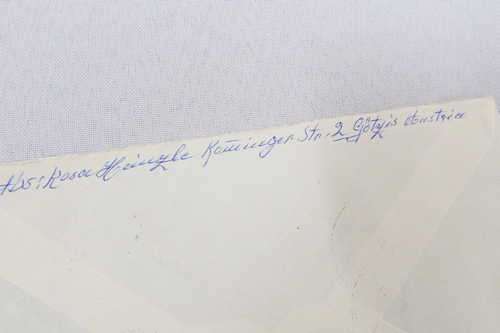 Abs: Rosa Heinzle Kominger Str. 2 Götzis Austria